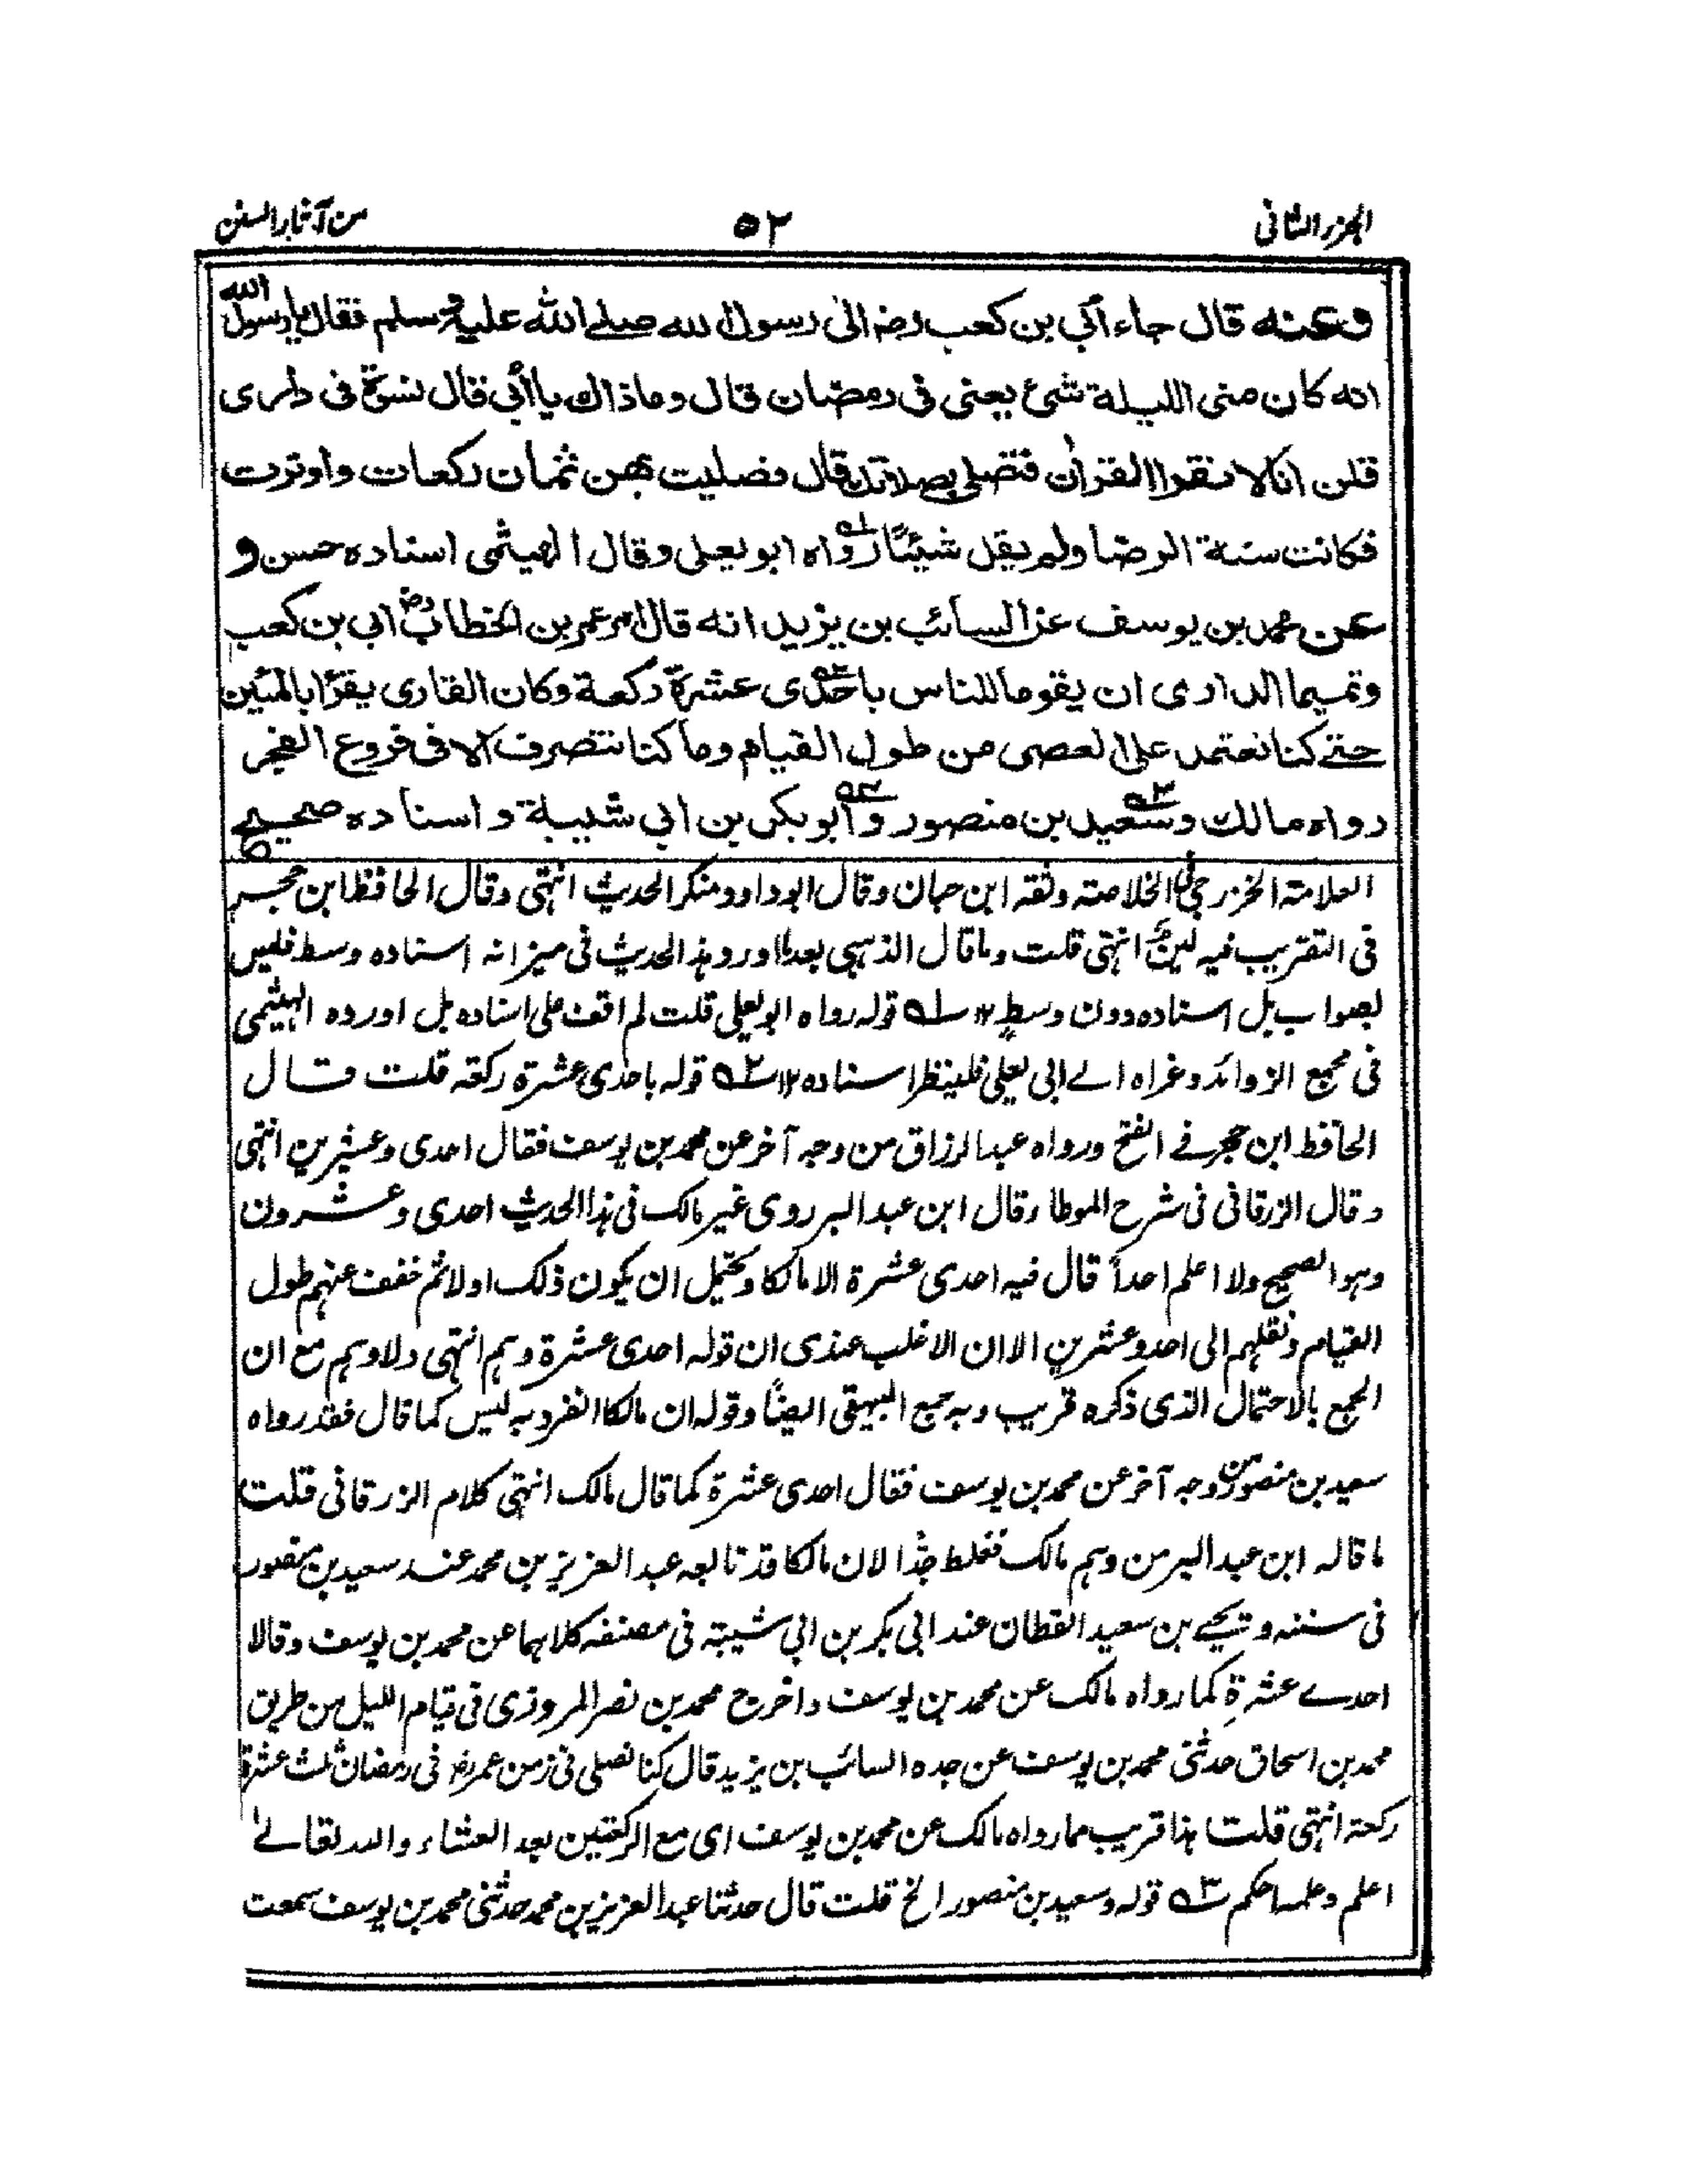 الجزء الثانى ٥٢ من آثار السنن
وعنه قال جاء أبي بن كعب رضـ الى رسول الله صلے الله عليه وسلم فقال يا رسول الله
انه كان منى الليلة شئ يعنى فى رمضان قال وما ذاك يا أبي قال نسوة فى دارى
قلن انا لا نقرؤا القرآن فنصلى بصلاتك قال فصليت بهن ثمان ركعات واوترت
فكانت سنة الرضا ولم يقل شيئًا رواه ابو يعلى وقال الهيثمى اسناده حسن و
عن محمد بن يوسف عن السائب بن يزيد انه قال امر عمر بن الخطاب رضـ ابي بن كعب
وتميما الدارى ان يقوما للناس باحدى عشرة ركعة وكان القارى يقرأ بالمئين
حتے كنا نعتمد على العصى من طول القيام وما كنا ننصرف الا فى فروع الفجر
رواه مالك وسعيد بن منصور وابو بكر بن ابي شيبة واسناده صحيح
العلامة الخزرجى فى الخلاصته وثقه ابن حبان وقال ابو داود منكر الحديث انتهى وقال الحافظ ابن حجر
فى التقريب فيه لين انتهى قلت وما قال الذهبى بعد ما اورد هذا الحديث فى ميزانه اسناده وسط فليس
بصواب بل اسناده دون وسط ١٢ ١ه قوله رواه ابو يعلى قلت لم اقف على اسناده بل اورده الهيثمى
فى مجمع الزوائد وعزاه الے ابى يعلى فلينظر اسناده ١٢ ٢ه قوله باحدى عشرة ركعة قلت قال
الحافظ ابن حجر فے الفتح ورواه عبد الرزاق من وجه آخر عن محمد بن يوسف فقال احدى وعشرين انتهى
وقال الزرقانى فى شرح الموطا وقال ابن عبد البر روى غير مالك فى هذا الحديث احدى وعشرون
وهو الصحيح ولا اعلم احداً قال فيه احدى عشرة الا مالكا ويحتمل ان يكون ذلك اولا ثم خفف عنهم طول
القيام ونقلهم الى احد وعشرين الا ان الاغلب عندى ان قوله احدى عشرة وهم انتهى ولا وهم مع ان
الجمع بالاحتمال الذى ذكره قريب وبه جمع البيهقى ايضًا وقوله ان مالكا انفرد به ليس كما قال فقد رواه
سعيد بن منصور من وجه آخر عن محمد بن يوسف فقال احدى عشرة كما قال مالك انتهى كلام الزرقانى قلت
ما قاله ابن عبد البر من وهم مالك فغلط جدا لان مالكا قد تابعه عبد العزيز بن محمد عند سعيد بن منصور
فى سننه و يحيے بن سعيد القطان عند ابى بكر بن ابي شيبته فى مصنفه كلاهما عن محمد بن يوسف وقالا
احدے عشرة كما رواه مالك عن محمد بن يوسف واخرج محمد بن نصر المروزى فى قيام الليل من طريق
محمد بن اسحاق حدثنى محمد بن يوسف عن جده السائب بن يزيد قال كنا نصلى فى زمن عمر رضـ فى رمضان ثلث عشرة
ركعة انتهى قلت هذا قريب مما رواه مالك عن محمد بن يوسف اى مع الركعتين بعد العشاء والله تعالےٰ
اعلم وعلمه احكم ٣ه قوله وسعيد بن منصور الخ قلت قال حدثنا عبد العزيز بن محمد حدثنى محمد بن يوسف سمعت